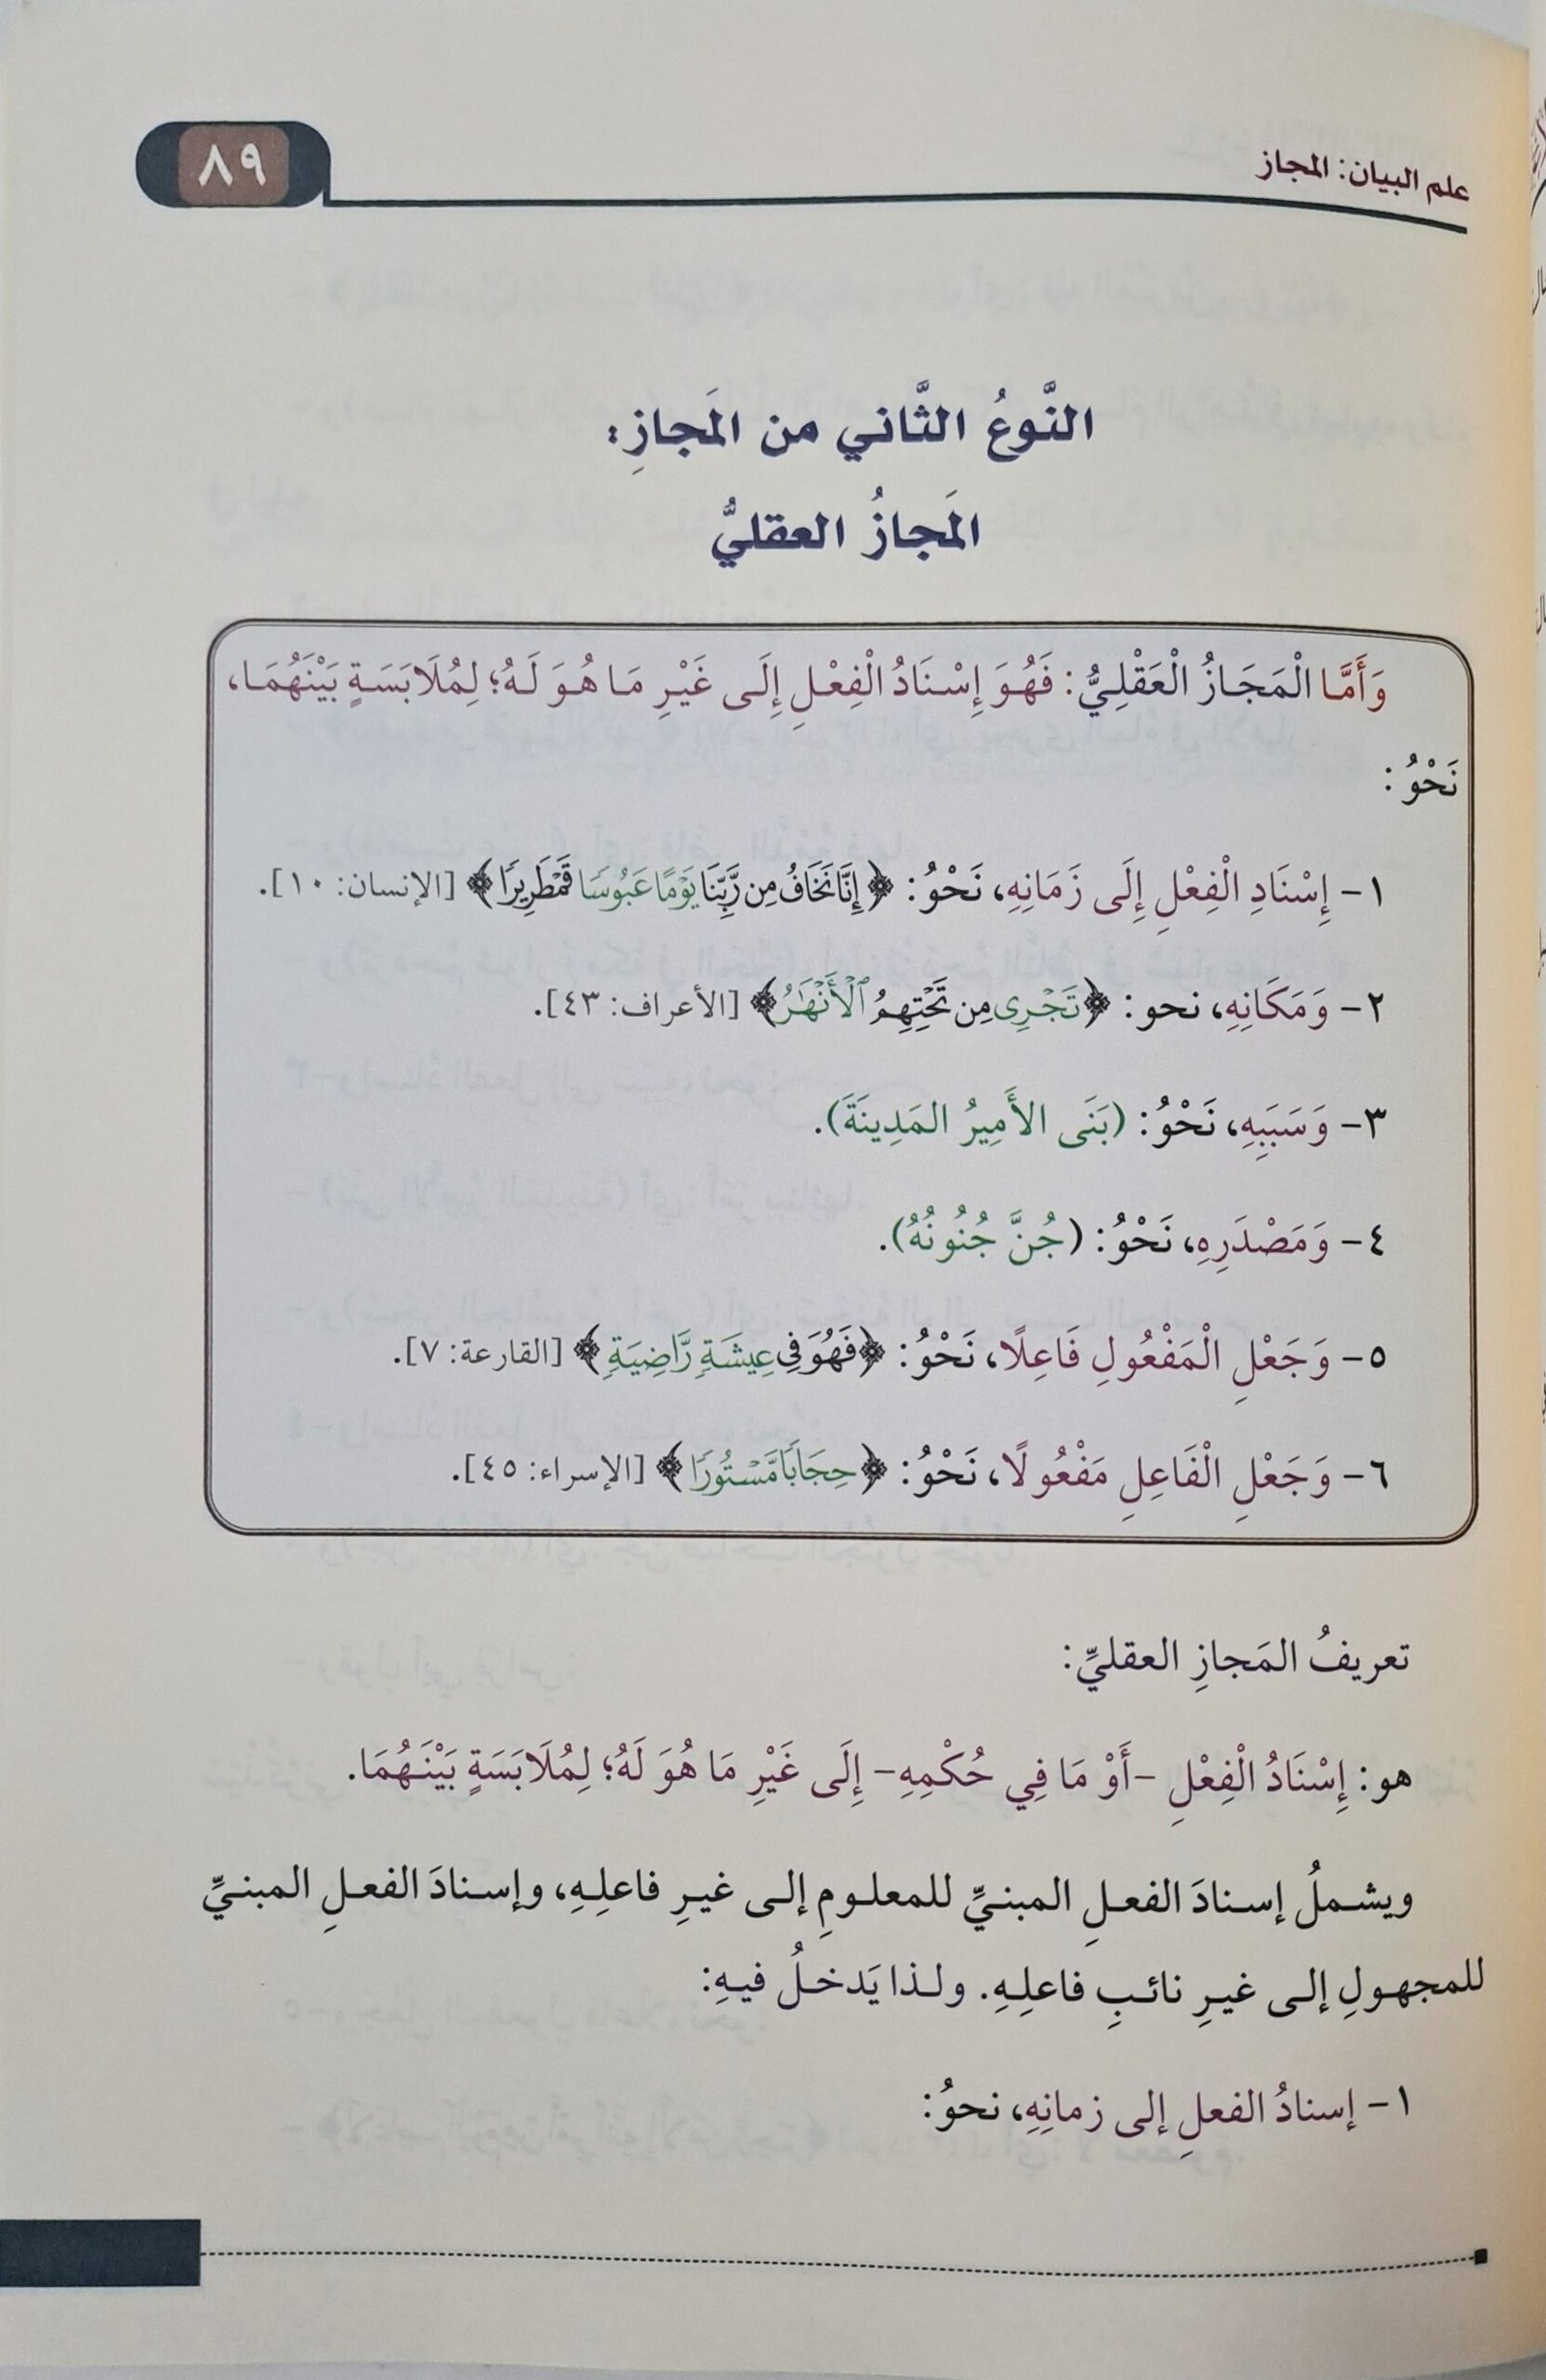 علم البيان: المجاز
٨٩
النَّوعُ الثَّاني من المَجازِ:
المَجازُ العقليُّ
وَأَمَّا الْمَجَازُ الْعَقْلِيُّ: فَهُوَ إِسْنَادُ الْفِعْلِ إِلَى غَيْرِ مَا هُوَ لَهُ؛ لِمُلَابَسَةٍ بَيْنَهُمَا،
نَحْوُ:
١- إِسْنَادِ الْفِعْلِ إِلَى زَمَانِهِ، نَحْوُ: ﴿إِنَّا نَخَافُ مِن رَّبِّنَا يَوْمًا عَبُوسًا قَمْطَرِيرًا﴾ [الإنسان: ١٠].
٢- وَمَكَانِهِ، نحو: ﴿تَجْرِى مِن تَحْتِهِمُ ٱلْأَنْهَٰرُ﴾ [الأعراف: ٤٣].
٣- وَسَبَبِهِ، نَحْوُ: (بَنَى الأَمِيرُ المَدِينَةَ).
٤- وَمَصْدَرِهِ، نَحْوُ: (جُنَّ جُنُونُهُ).
٥- وَجَعْلِ الْمَفْعُولِ فَاعِلًا، نَحْوُ: ﴿فَهُوَ فِى عِيشَةٍ رَّاضِيَةٍ﴾ [القارعة: ٧].
٦- وَجَعْلِ الْفَاعِلِ مَفْعُولًا، نَحْوُ: ﴿حِجَابًا مَّسْتُورًا﴾ [الإسراء: ٤٥].
تعريفُ المَجازِ العقليِّ:
هو: إِسْنَادُ الْفِعْلِ -أَوْ مَا فِي حُكْمِهِ- إِلَى غَيْرِ مَا هُوَ لَهُ؛ لِمُلَابَسَةٍ بَيْنَهُمَا.
ويشملُ إسنادَ الفعلِ المبنيِّ للمعلومِ إلى غيرِ فاعلِهِ، وإسنادَ الفعلِ المبنيِّ
للمجهولِ إلى غيرِ نائبِ فاعلِهِ. ولذا يَدخلُ فيهِ:
١- إسنادُ الفعلِ إلى زمانِهِ، نحوُ: